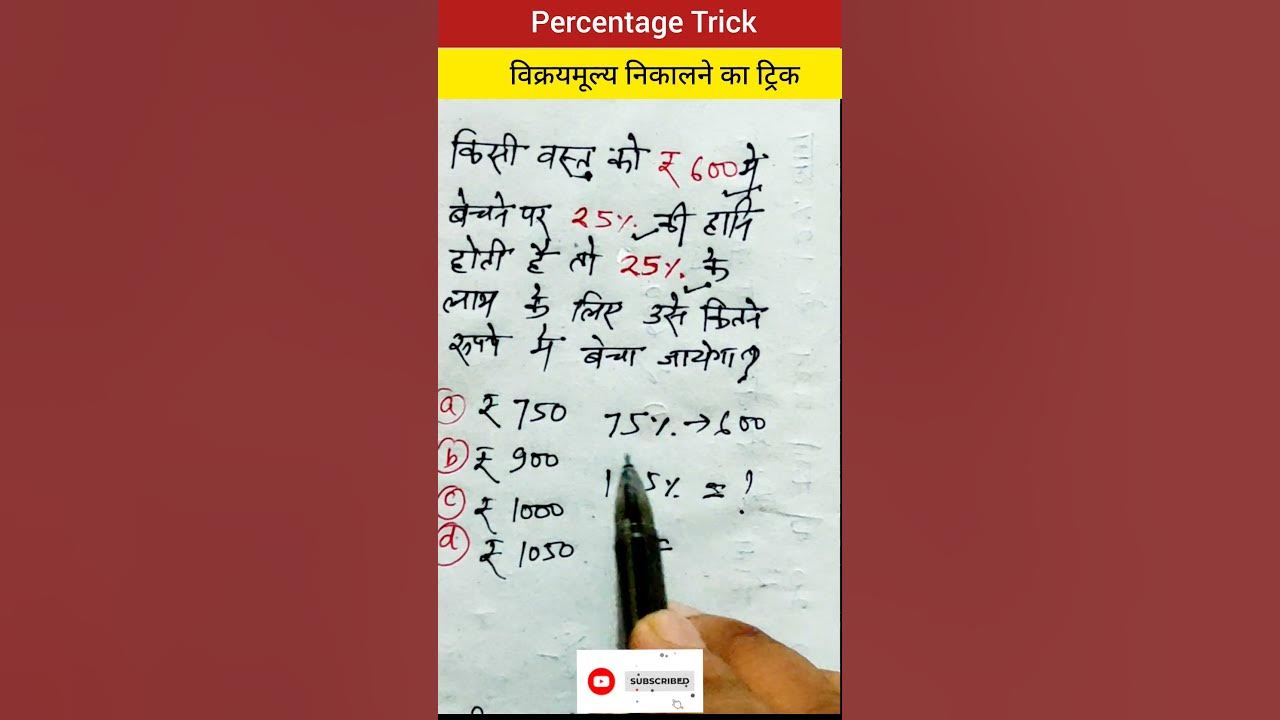 Percentage Trick
विक्रयमूल्य निकालने का ट्रिक
किसी वस्तु को ₹ 600 में
बेचने पर 25% की हानि
होती है तो 25% के
लाभ के लिए उसे कितने
रुपये में बेचा जायेगा?
a ₹ 750
75% → 600
b ₹ 900
c ₹ 1000
d ₹ 1050
=
SUBSCRIBED